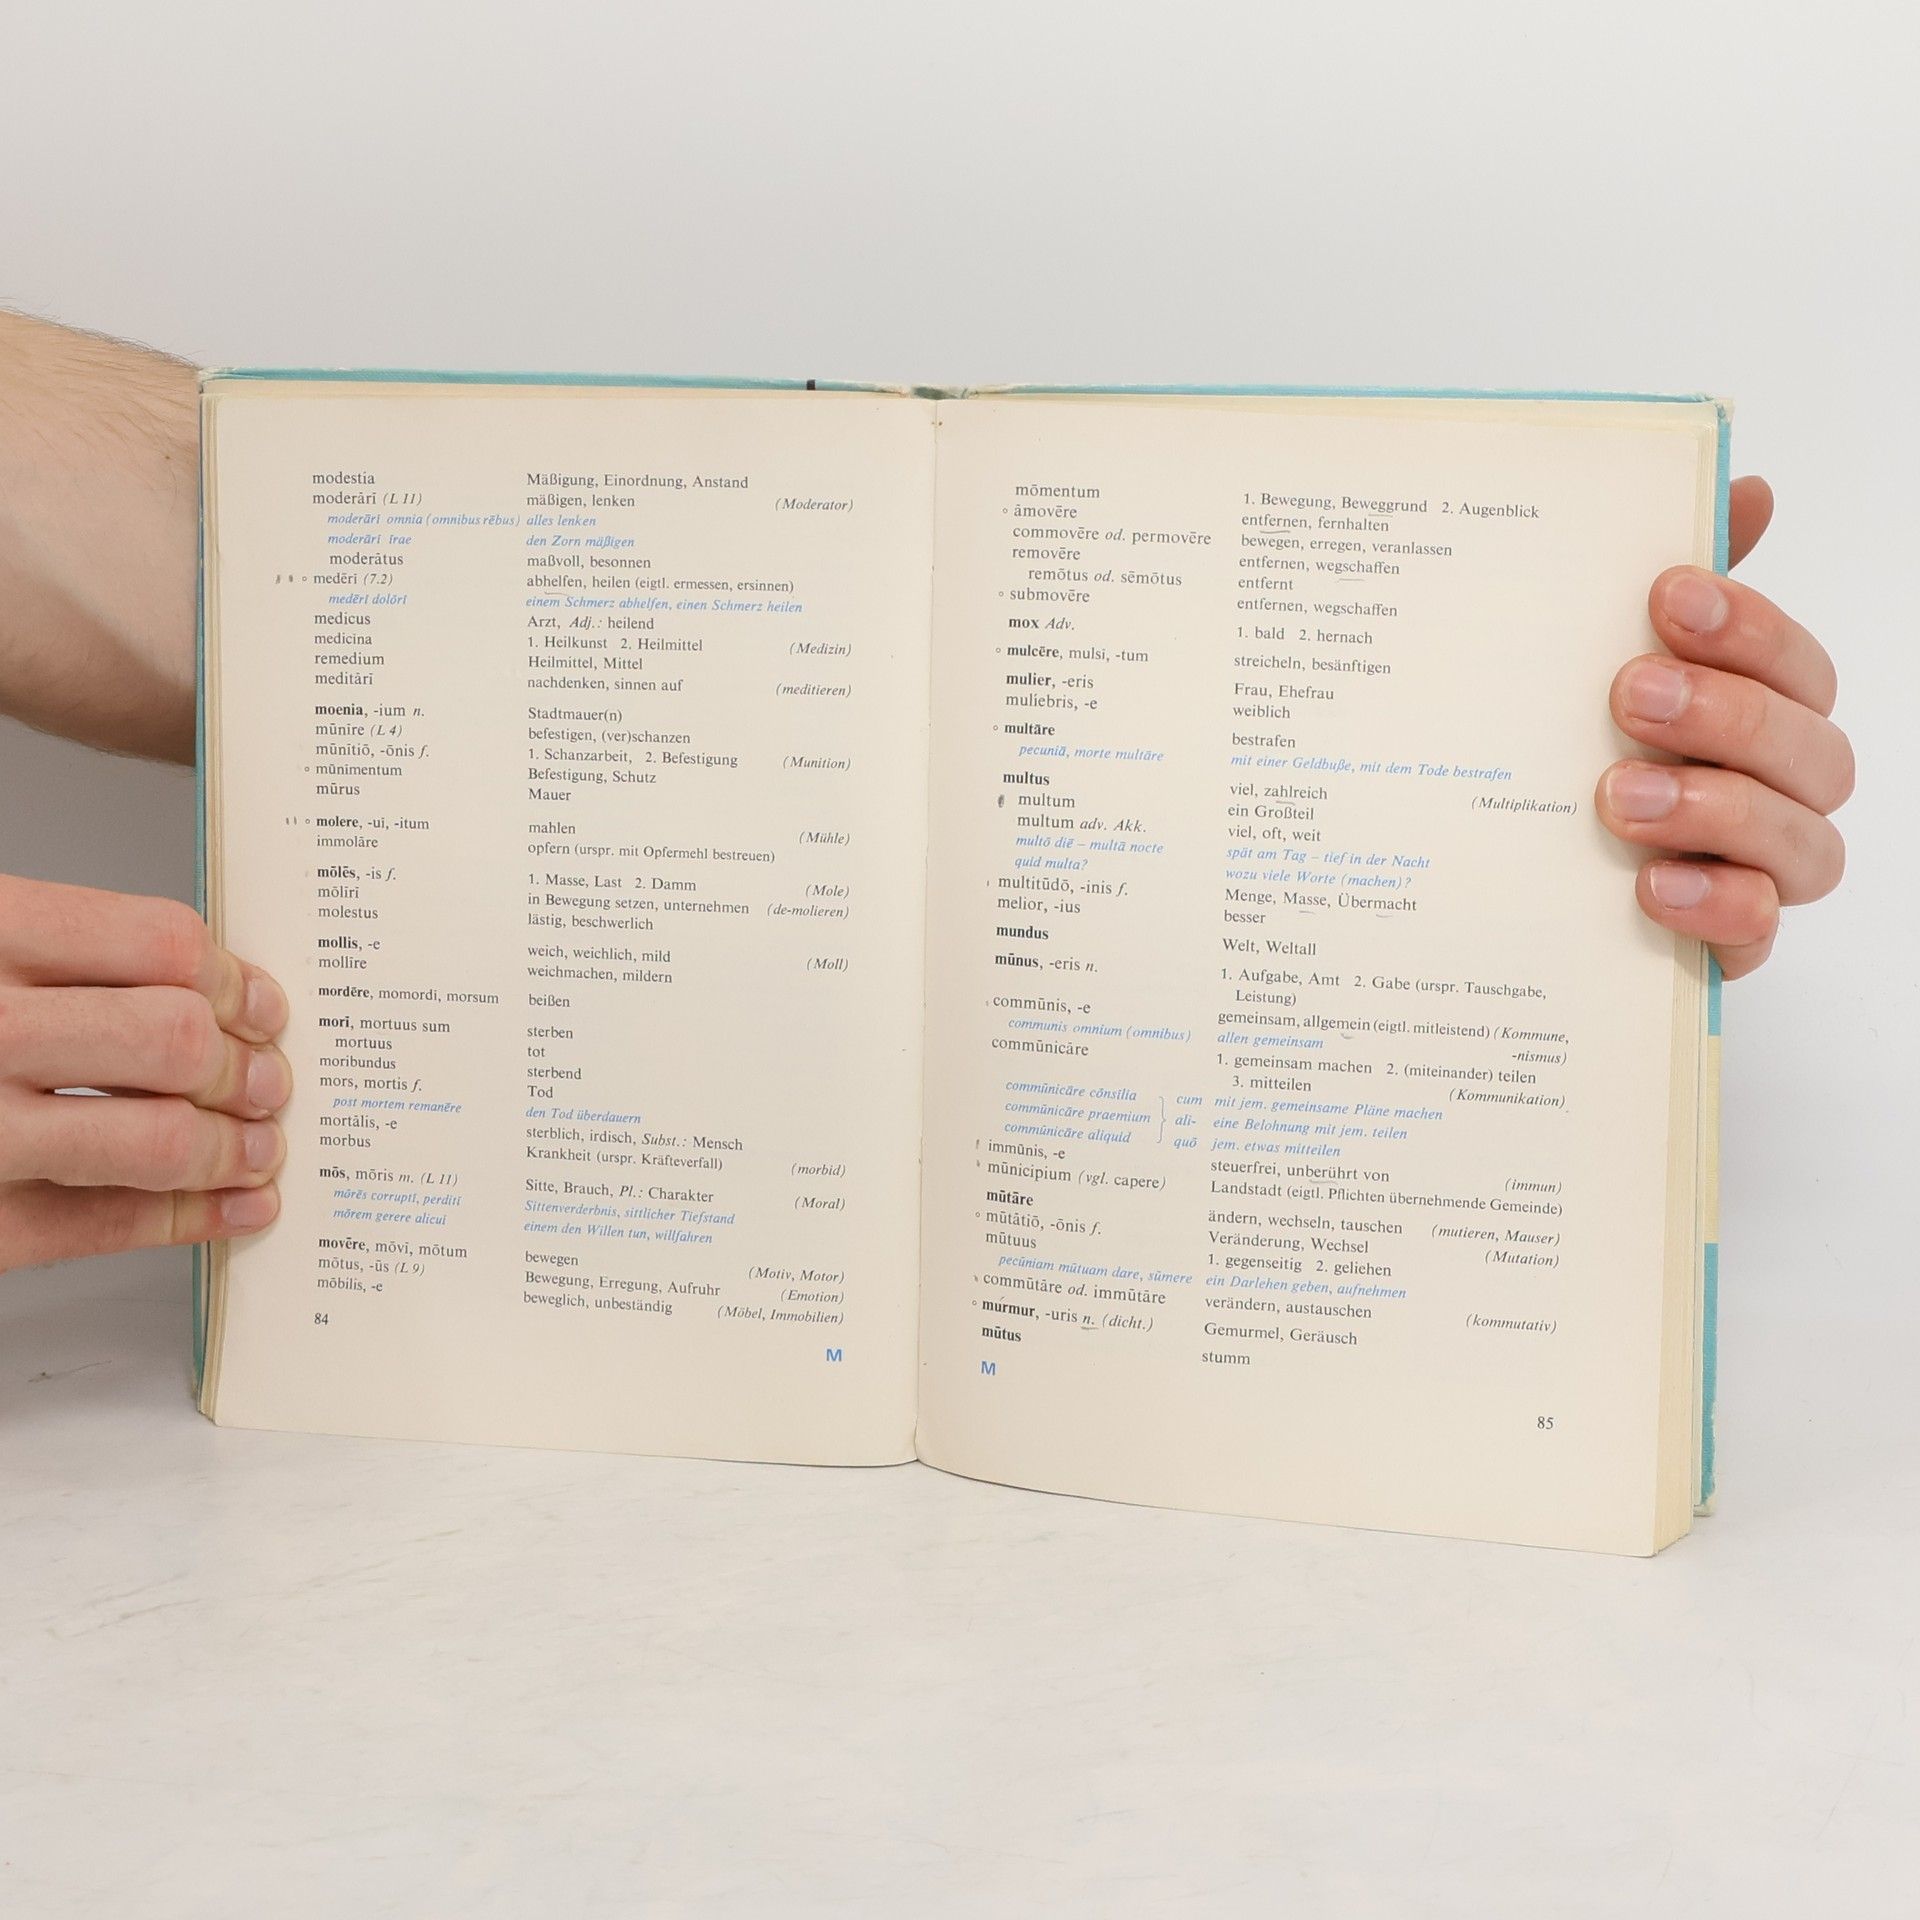 modestia Mäßigung, Einordnung, Anstand
moderārī (L 11) mäßigen, lenken (Moderator)
moderārī omnia (omnibus rēbus) alles lenken
moderārī īrae den Zorn mäßigen
moderātus maßvoll, besonnen
◦ medērī (7.2) abhelfen, heilen (eigtl. ermessen, ersinnen)
medērī dolōrī einem Schmerz abhelfen, einen Schmerz heilen
medicus Arzt, Adj.: heilend
medicina 1. Heilkunst 2. Heilmittel (Medizin)
remedium Heilmittel, Mittel
meditārī nachdenken, sinnen auf (meditieren)
moenia, -ium n. Stadtmauer(n)
mūnīre (L 4) befestigen, (ver)schanzen
mūnītiō, -ōnis f. 1. Schanzarbeit, 2. Befestigung (Munition)
◦ mūnīmentum Befestigung, Schutz
mūrus Mauer
◦ molere, -uī, -itum mahlen (Mühle)
immolāre opfern (urspr. mit Opfermehl bestreuen)
mōlēs, -is f. 1. Masse, Last 2. Damm (Mole)
mōlīrī in Bewegung setzen, unternehmen (de-molieren)
molestus lästig, beschwerlich
mollis, -e weich, weichlich, mild (Moll)
mollīre weichmachen, mildern
mordēre, momordī, morsum beißen
morī, mortuus sum sterben
mortuus tot
moribundus sterbend
mors, mortis f. Tod
post mortem remanēre den Tod überdauern
mortālis, -e sterblich, irdisch, Subst.: Mensch
morbus Krankheit (urspr. Kräfteverfall) (morbid)
mōs, mōris m. (L 11) Sitte, Brauch, Pl.: Charakter (Moral)
mōrēs corruptī, perditī Sittenverderbnis, sittlicher Tiefstand
mōrem gerere alicui einem den Willen tun, willfahren
movēre, mōvī, mōtum bewegen (Motiv, Motor)
mōtus, -ūs (L 9) Bewegung, Erregung, Aufruhr (Emotion)
mōbilis, -e beweglich, unbeständig (Möbel, Immobilien)
84
M
mōmentum 1. Bewegung, Beweggrund 2. Augenblick
◦ āmovēre entfernen, fernhalten
commovēre od. permovēre bewegen, erregen, veranlassen
removēre entfernen, wegschaffen
remōtus od. sēmōtus entfernt
◦ submovēre entfernen, wegschaffen
mox Adv. 1. bald 2. hernach
◦ mulcēre, mulsī, -tum streicheln, besänftigen
mulier, -eris Frau, Ehefrau
muliebris, -e weiblich
◦ multāre bestrafen
pecuniā, morte multāre mit einer Geldbuße, mit dem Tode bestrafen
multus viel, zahlreich (Multiplikation)
multum ein Großteil
multum adv. Akk. viel, oft, weit
multō diē – multā nocte spät am Tag – tief in der Nacht
quid multa? wozu viele Worte (machen)?
multitūdō, -inis f. Menge, Masse, Übermacht
melior, -ius besser
mundus Welt, Weltall
mūnus, -eris n. 1. Aufgabe, Amt 2. Gabe (urspr. Tauschgabe,
Leistung)
commūnis, -e gemeinsam, allgemein (eigtl. mitleistend) (Kommune,
communis omnium (omnibus) allen gemeinsam -nismus)
commūnicāre 1. gemeinsam machen 2. (miteinander) teilen
3. mitteilen (Kommunikation)
commūnicāre cōnsilia cum mit jem. gemeinsame Pläne machen
commūnicāre praemium } ali- eine Belohnung mit jem. teilen
commūnicāre aliquid quō jem. etwas mitteilen
immūnis, -e steuerfrei, unberührt von (immun)
mūnicipium (vgl. capere) Landstadt (eigtl. Pflichten übernehmende Gemeinde)
mūtāre ändern, wechseln, tauschen (mutieren, Mauser)
◦ mūtātiō, -ōnis f. Veränderung, Wechsel (Mutation)
mūtuus 1. gegenseitig 2. geliehen
pecūniam mūtuam dare, sūmere ein Darlehen geben, aufnehmen
commūtāre od. immūtāre verändern, austauschen (kommutativ)
◦ murmur, -uris n. (dicht.) Gemurmel, Geräusch
mūtus stumm
M
85